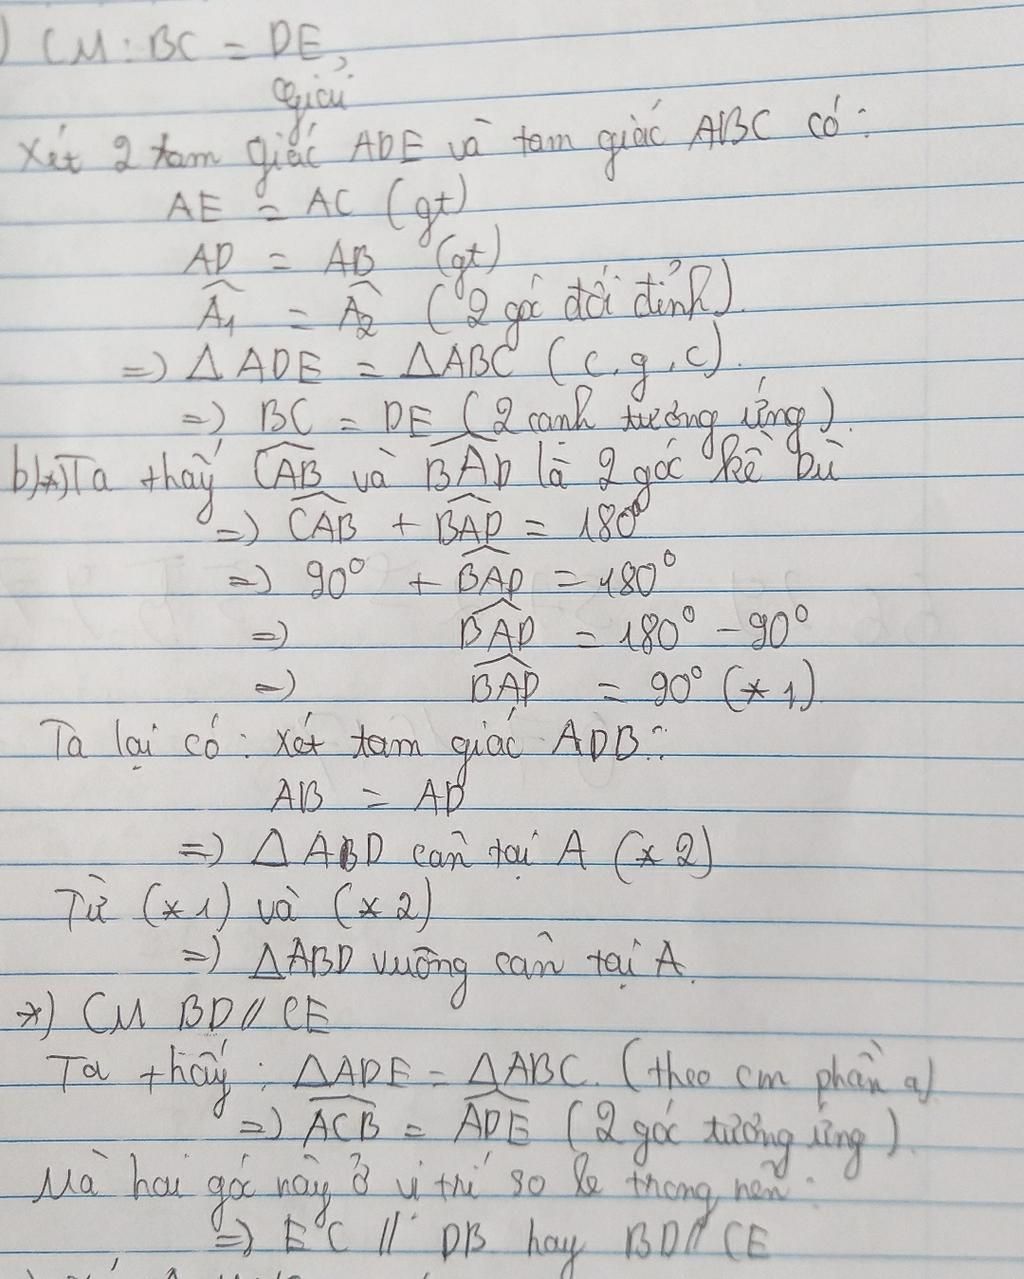 ) CM : BC = DE,
Giải
Xét 2 tam giác ADE và tam giác ABC có :
AE = AC (gt)
AD = AB (gt)
Â1 = Â2 ( 2 góc đối đỉnh).
=) Δ ADE = ΔABC ( c.g.c).
=) BC = DE ( 2 cạnh tương ứng).
b)*)Ta thấy CAB và BAD là 2 góc kề bù
=) CAB + BAD = 180°
=) 90° + BAD = 180°
=) BAD = 180° - 90°
=) BAD = 90° (*1)
Ta lại có : xét tam giác ADB :
AB = AD
=) Δ ABD cân tại A (*2)
Từ (*1) và (*2)
=) ΔABD vuông cân tại A.
*) CM BD // CE
Ta thấy : ΔADE = ΔABC. (theo cm phần a)
=) ACB = ADE ( 2 góc tương ứng ).
Mà hai góc này ở vị trí so le trong nên :
=) EC // DB hay BD // CE